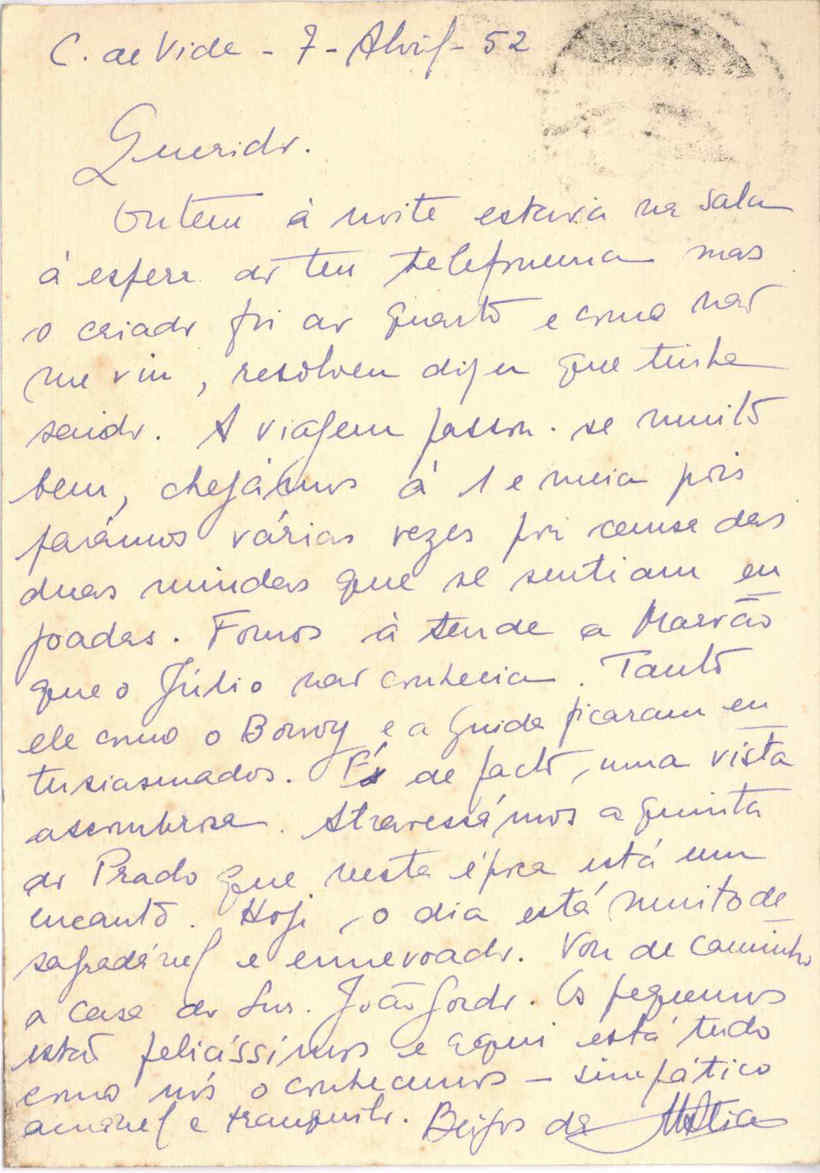 C. de Vide - 7 - Abril - 52
Querido.
Ontem à noite estava na sala
à espera do teu telefonema mas
o criado foi ao quarto e como não
me viu, resolveu dizer que tinha
saido. A viagem passou-se muito
bem, chegámos à 1 e meia pois
parámos várias vezes por causa das
duas miudas que se sentiam en
joadas. Fomos à tarde a Marvão
que o Júlio não conhecia. Tanto
ele como o e a Guida ficaram en
tusiasmados. É de facto, uma vista
assombrosa. Atravessámos a quinta
do Prado que nesta época está um
encanto. Hoje, o dia está muito de
sagradável e ennevoado. Vou de caminho
a casa do Snr. João Gordo. Os pequenos
estão felicíssimos e aqui está tudo
como nós o conhecemos - simpático
amável e tranquilo. Beijos da